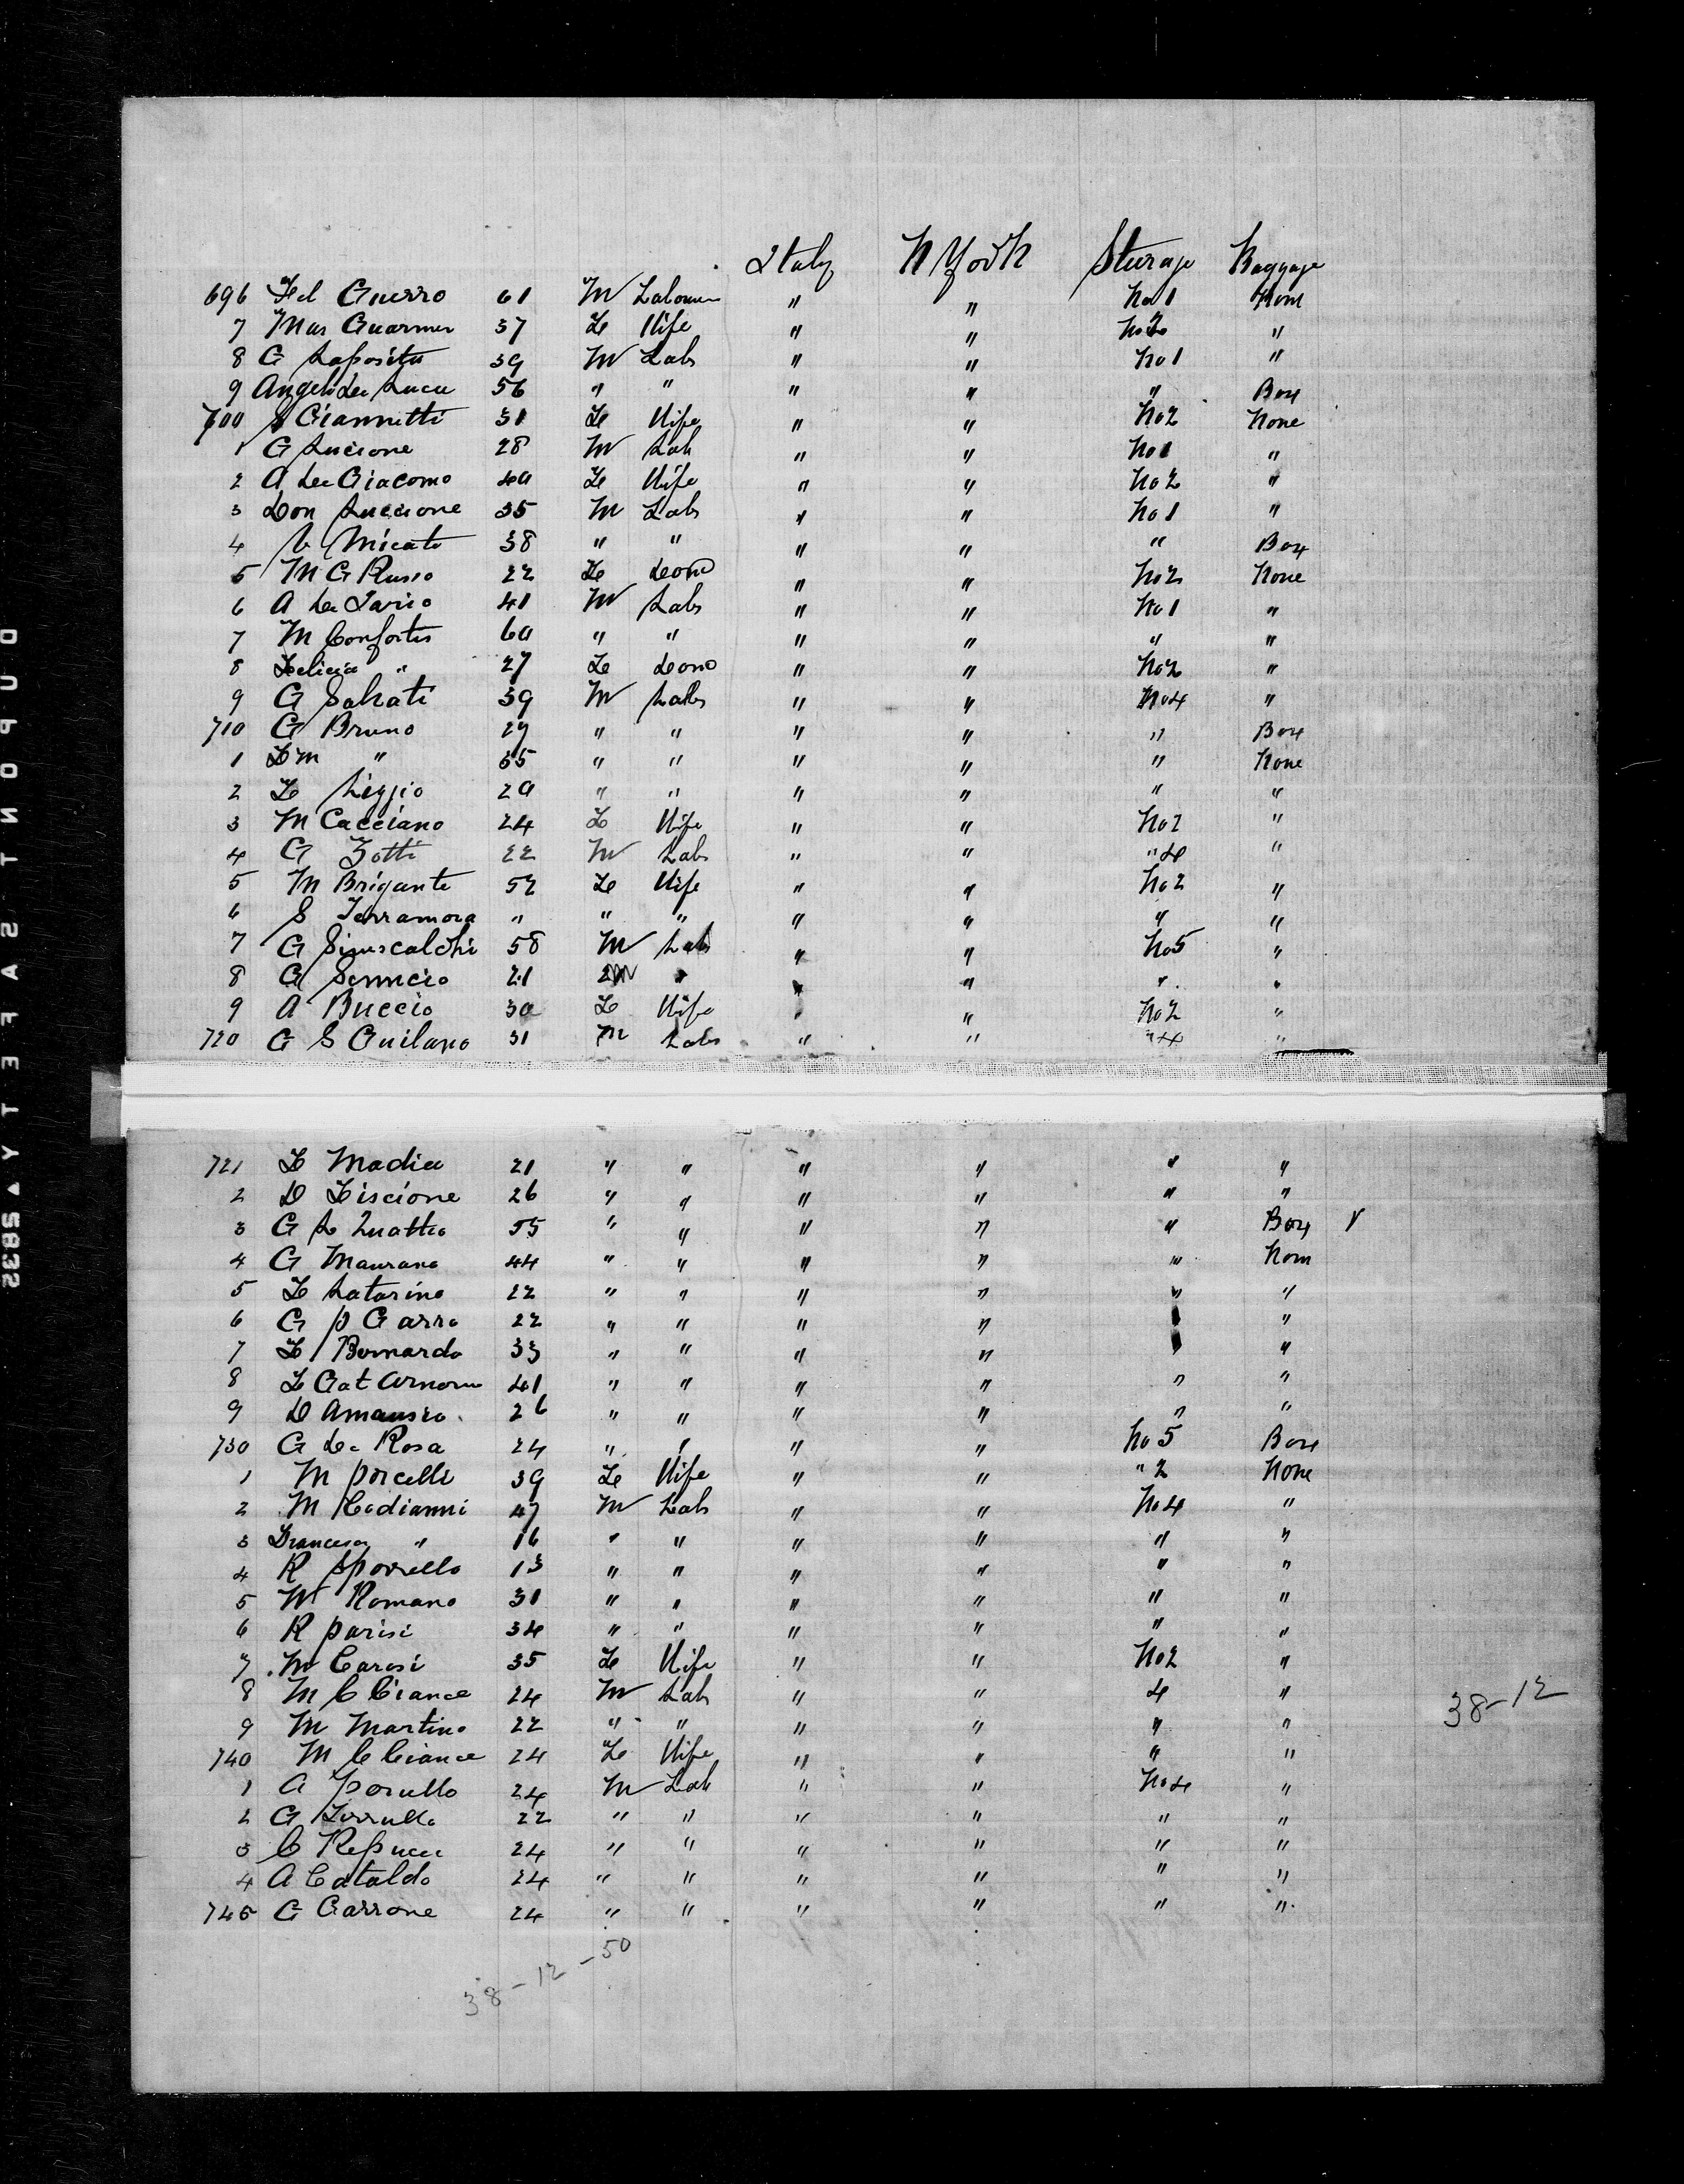 Italy N York Sturage Baggage
696 Fel Guerro 61 M Labourer " " No 1 None
7 Mar Guarner 37 Fe Wife " " No 2 "
8 G Laposita 39 M Labr " " No 1 "
9 Angelo De Luca 56 " " " " " Box
700 S Giannitti 31 Fe Wife " " No 2 None
1 G Luciano 28 M Lab " " No 1 "
2 A De Giacomo 40 Fe Wife " " No 2 "
3 Don Luccione 35 M Labr " " No 1 "
4 V Micato 38 " " " " " Box
5 M G Russo 22 Fe " " No 2 None
6 A De Iario 41 M Labr " " No 1 "
7 M Confortis 60 " " " " " "
8 Felicia " 27 Fe " " No 2 "
9 G Salvati 39 M Labr " " No 4 "
710 G Bruno 29 " " " " " Box
1 " " " " " " None
2 Fe Liggio 20 " " " " " "
3 M Cacciano 24 Fe Wife " " No 2 "
4 G Zotti 22 M Labr " " " 4 "
5 M Brigante 52 Fe Wife " " No 2 "
6 S Terramora " " " " " " "
7 G Siniscalchi 58 M Labr " " No 5 "
8 G 21 M " " " " "
9 A Buccio 30 Fe Wife " " No 2 "
720 G S Guilano 31 M Labr " " " 4 "
721 F Madia 21 " " " " " "
2 D Fiscione 26 " " " " " "
3 G 55 " " " " " Box
4 G Maurano 44 " " " " " None
5 F Latorino 22 " " " " " "
6 G P Garro 22 " " " " " "
7 F Bernardo 33 " " " " " "
8 F Gat 41 " " " " " "
9 D 26 " " " " " "
730 G De Rosa 24 " " " " No 5 Box
1 M Porcelli 39 Fe Wife " " " 2 None
2 M Codianni 47 M Labr " " No 4 "
3 Francesco " 16 " " " " " "
4 R Sporello 13 " " " " " "
5 M Romano 31 " " " " " "
6 R Parisi 34 " " " " " "
7 M Carosi 35 Fe Wife " " No 2 "
8 M C Ciance 24 M Labr " " 4 "
38-12
9 M Martino 22 " " " " " "
740 M C Ciance 24 Fe Wife " " " "
1 A Porullo 24 M Lab " " No 4 "
2 G Torrullo 22 " " " " " "
3 C Repucci 24 " " " " " "
4 A Cataldo 24 " " " " " "
745 G Garrone 24 " " " " " "
38-12-50
DUPONT SAFETY 5832